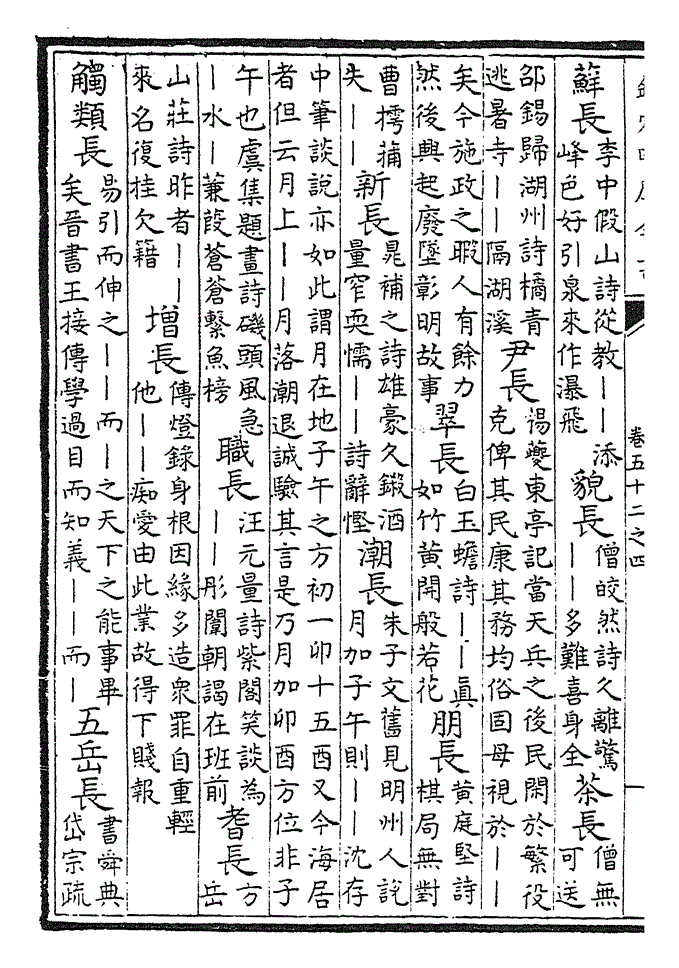 卷五十二之四
蘚長李中假山詩從教——添
峰色好引泉來作瀑飛
貌長僧皎然詩久離驚
——多難喜身全
茶長僧無
可送
邵錫歸湖州詩橘青
逃暑寺——隔湖溪
尹長楊夔東亭記當天兵之後民閑於繁役
克俾其民康其務均俗固毋視於——
矣今施政之暇人有餘力
然後興起廢墜彰明故事
翠長白玉蟾詩——眞
如竹黄開般若花
朋長黄庭堅詩
棋局無對
曹樗蒱
失——
新長晁補之詩雄豪久鍛酒
量窄耎懦——詩辭慳
潮長朱子文舊見明州人說
月加子午則——沈存
中筆談說亦如此謂月在地子午之方初一卯十五酉又今海居
者但云月上——月落潮退誠驗其言是乃月加卯酉方位非子
午也虞集題畫詩磯頭風急
—水—蒹葭蒼蒼繫魚榜
職長汪元量詩紫閣笑談為
——彤闈朝謁在班前
耆長方
岳
山莊詩昨者——
來名復挂欠籍
增長傳燈錄身根因緣多造衆罪自重輕
他——痴愛由此業故得下賤報
觸類長易引而伸之——而—之天下之能事畢
矣晉書王接傳學過目而知義——而—
五岳長書舜典
岱宗疏